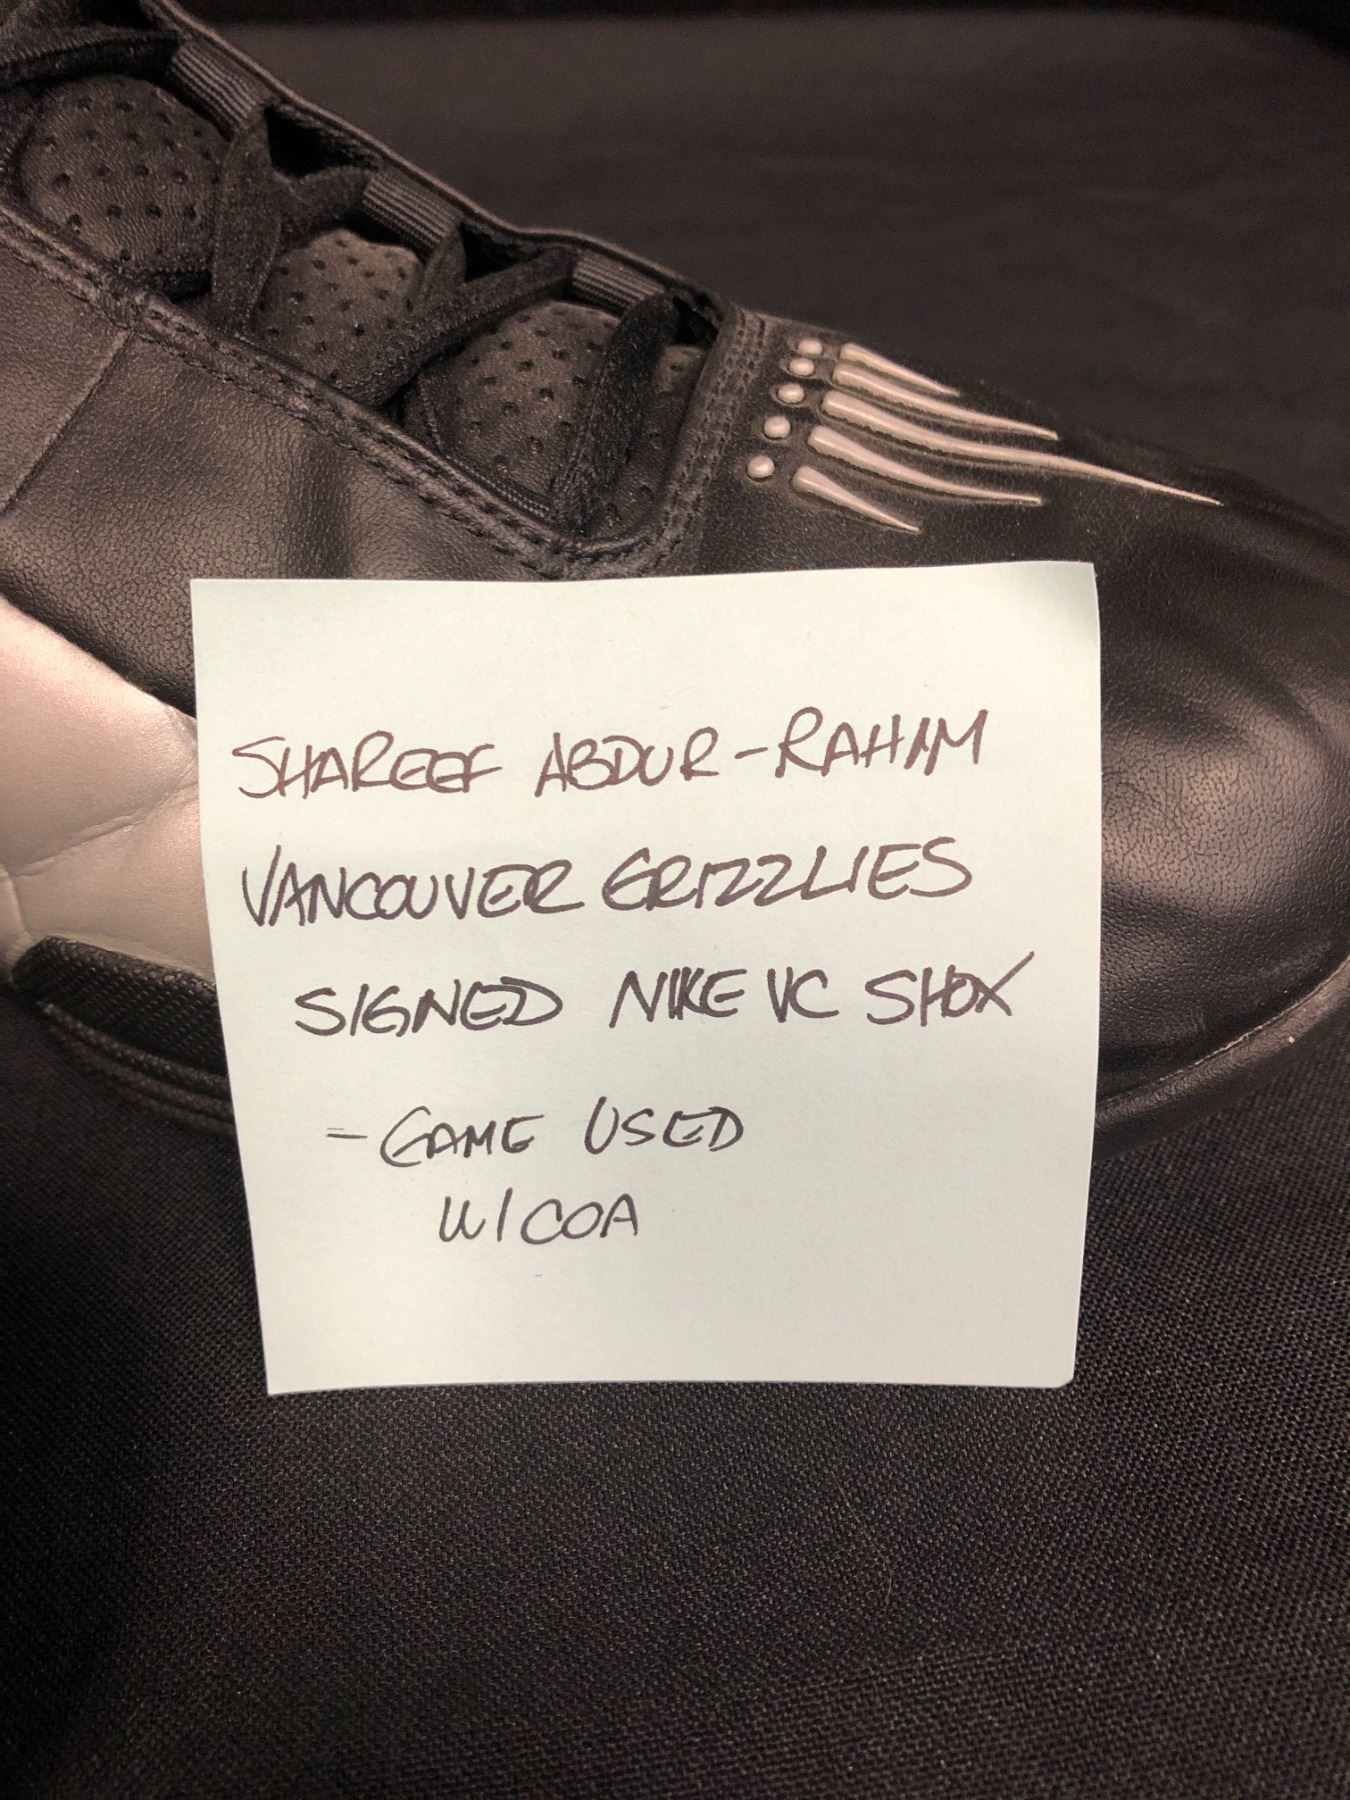 SHAREEF ABDUR-RAHIM
VANCOUVER GRIZZLIES
SIGNED NIKE VC SHOX
- GAME USED
W/COA